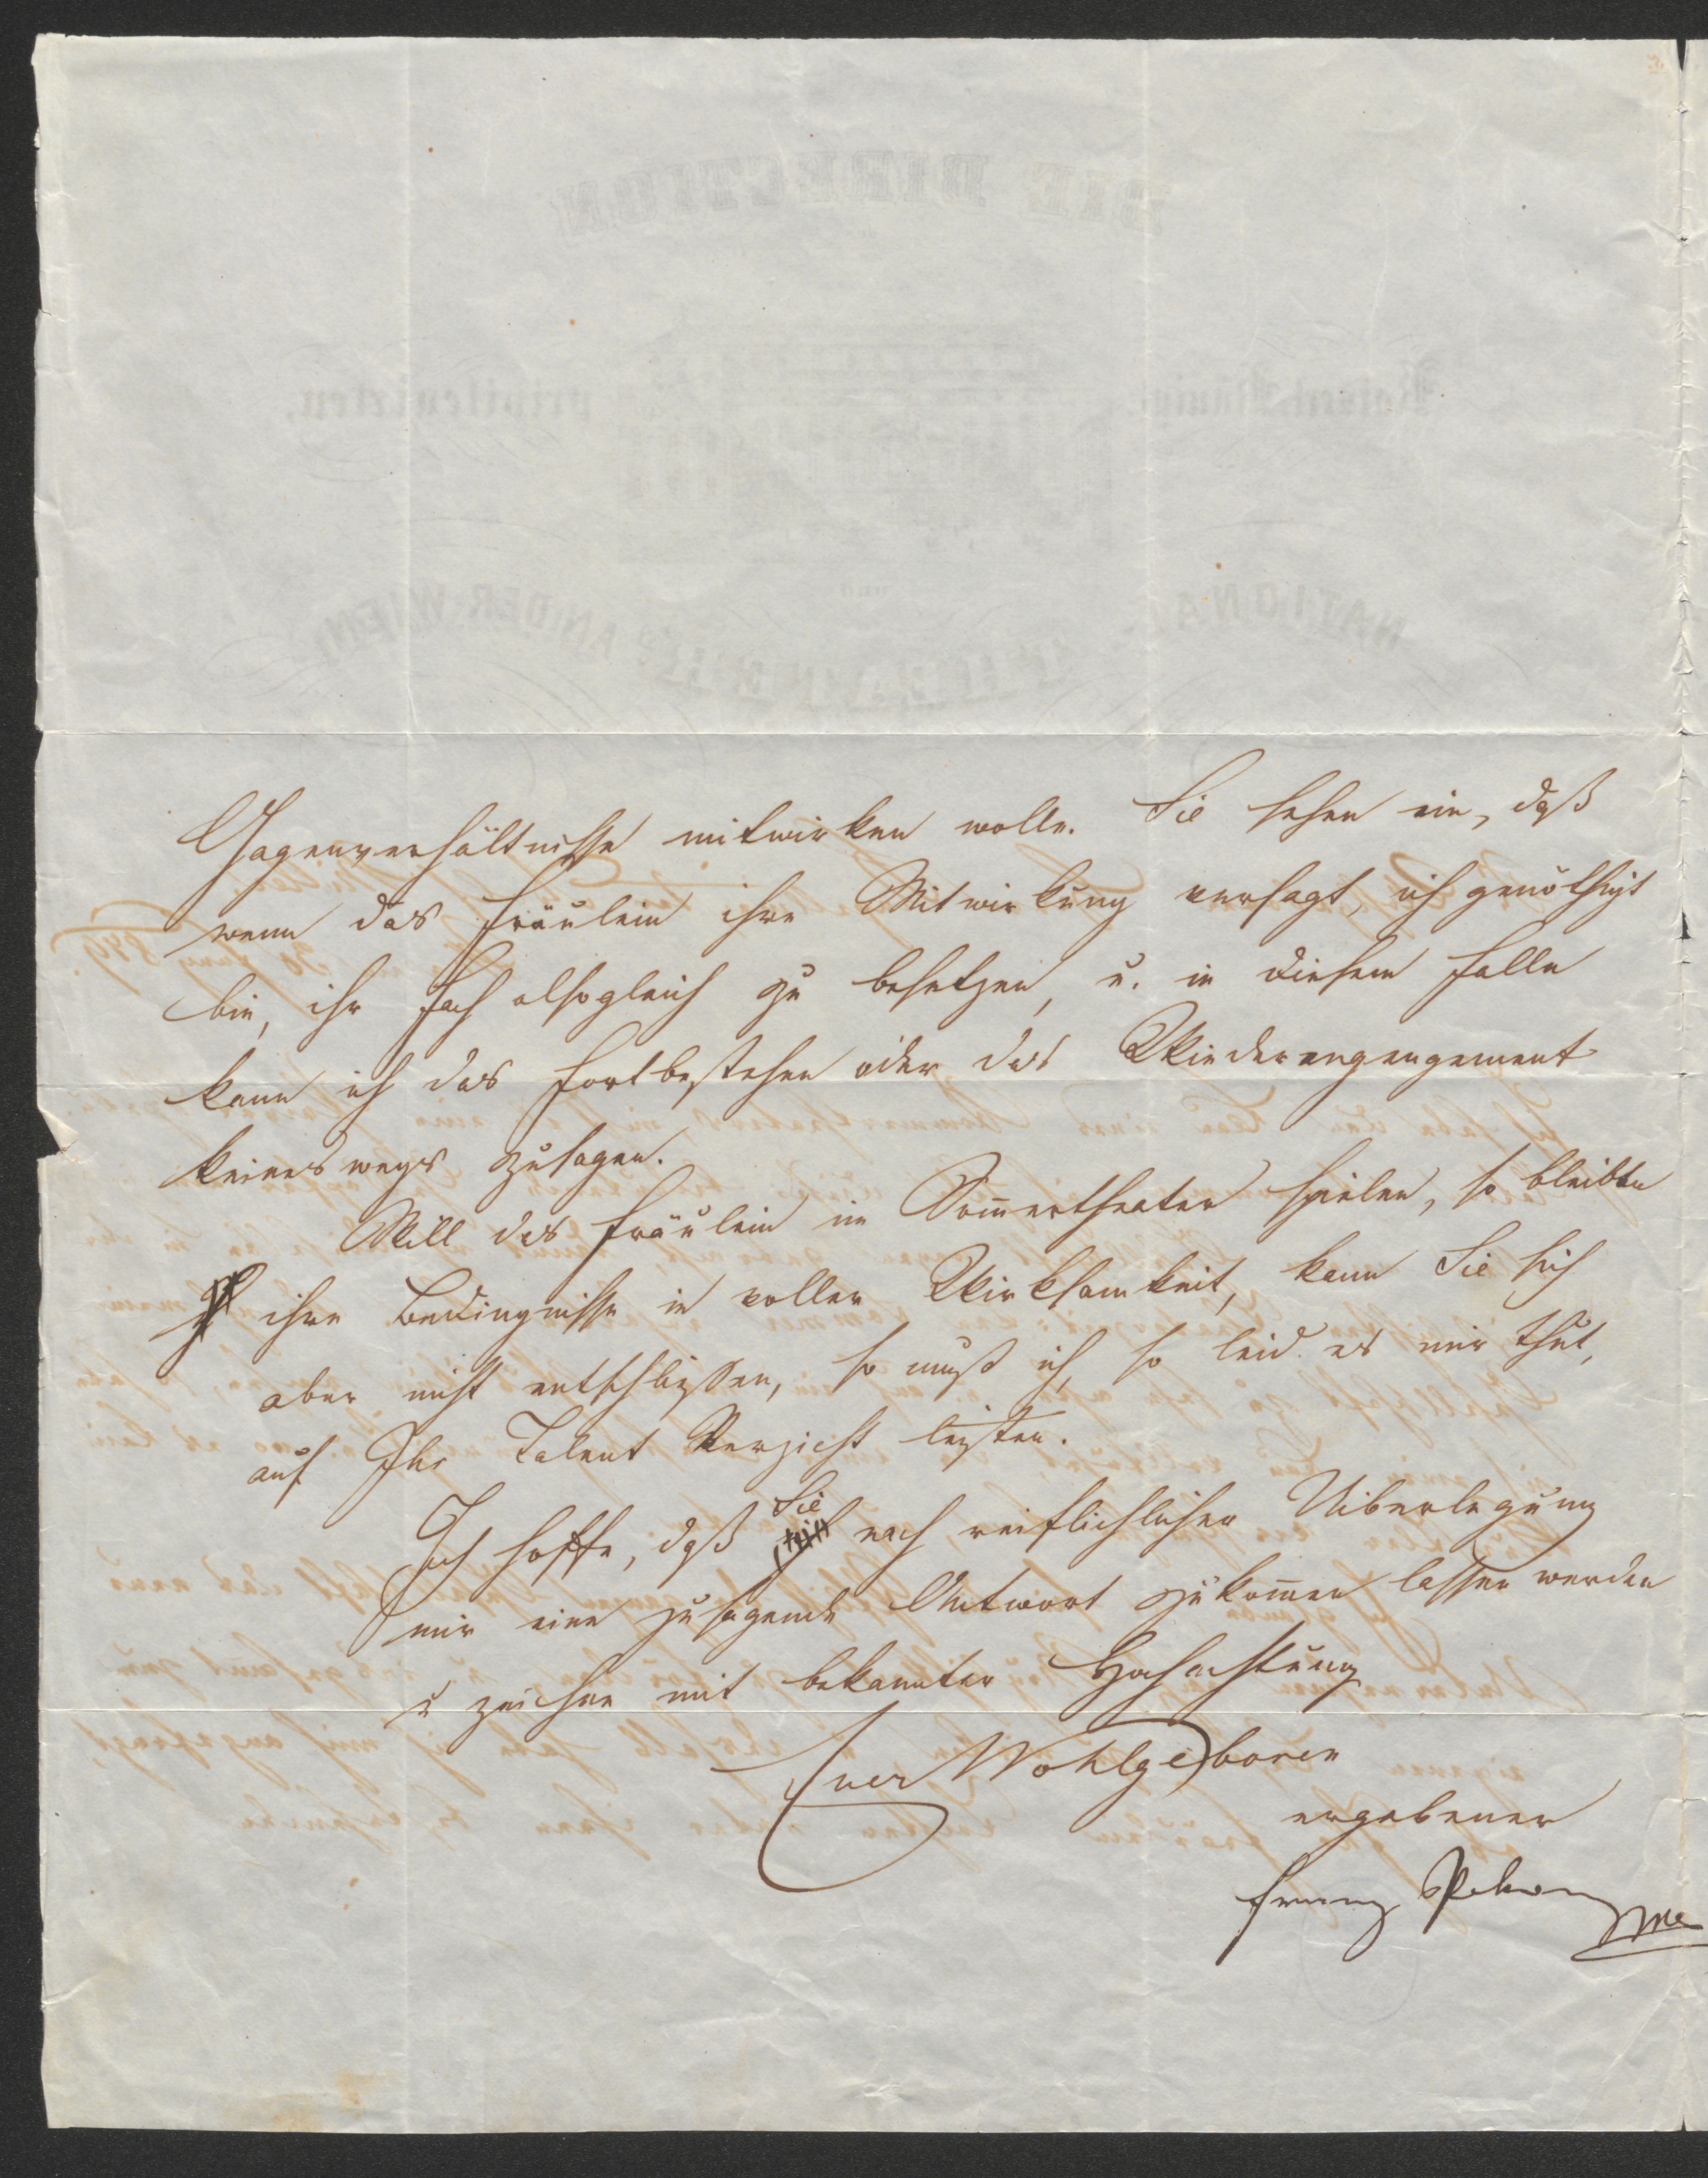 Gagenverhältnisse mitwirken wolle. Sie sehen ein, daß
wenn das Fräulein ihre Mitwirkung versagt, ich genöthigt
bin, ihr Fach alsogleich zu besetzen, u. in diesem Falle
kann ich das Fortbestehen oder das Wiederengagement
keineswegs zusagen.
Will das Fräulein im Som̄ertheater spielen, so bleiben
ihre Bedingnisse in voller Wirksamkeit, kann Sie sich
aber nicht entschließen, so muß ich, so leid es mir thut,
auf Ihr Talent Verzicht leisten.
Ich hoffe, daß Sie nach reiflichlicher Uiberlegung
mir eine zusagende Antwort zukom̄en lassen werden
u zeichne mit bekannter Hochachtung
Euer Wohlgeboren
ergebener
Franz Pokorny